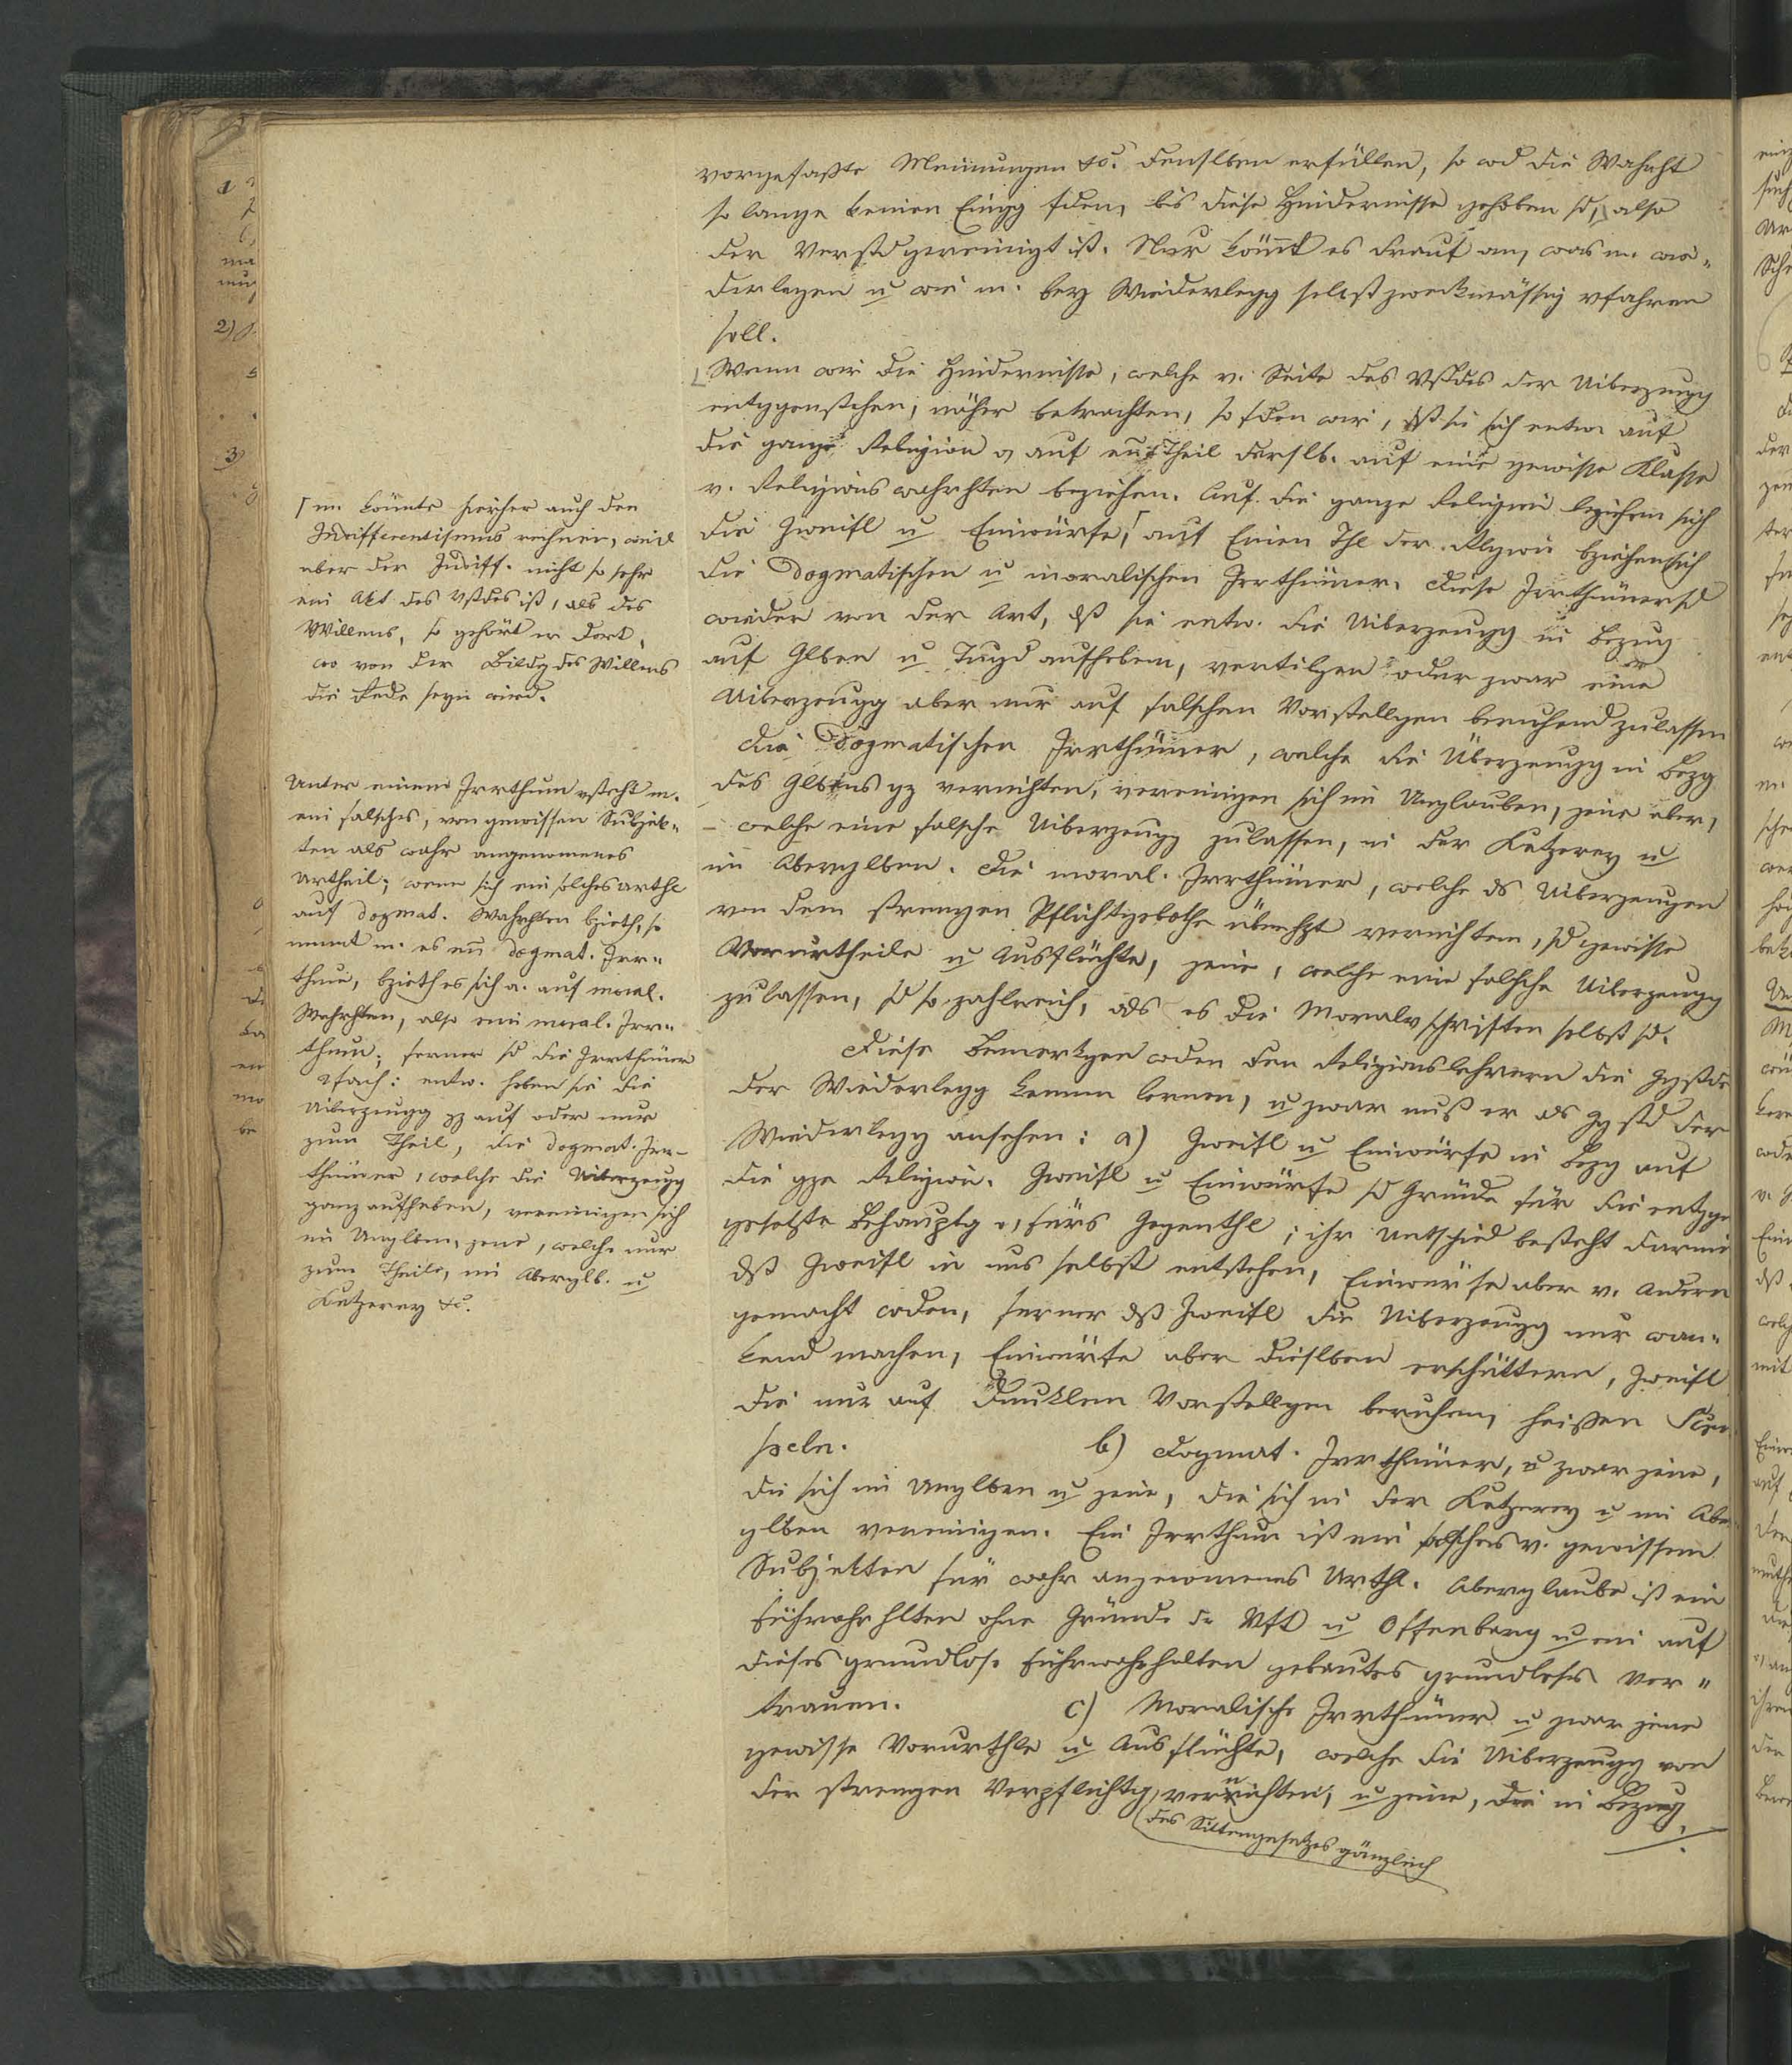 vorgefaßte Meinungen &c. denslben erfüllen, so wd die Wahrht
so lange keinen Eingg fden, bis diese Hindernisse gehoben sd, also
der Verstd gereinigt ist. Nur kömt es drauf an, was m. wie-
derlegen u wie m. bey Wiederlegg selbst zweckmässig vfahren
soll.
Wenn wir die Hindernisse, welche v. Seite des Vstdes der Uiberzeugg
entggenstehen, näher betrachten, so fden wir, dß sie sich entw. auf
die ganze Religion o, auf ein Theil derslb. auf eine gewisse Klasse
v. Religionswahrhten beziehen. Auf die ganze Religion beziehen sich
die Zweifl u Einwürfe, auf Einen Thl der Rlgion bziehen sich
die dogmatischen u moralischen Irrthümer. Diese Irrthümer sd
wieder von der Art, dß sie entw. die Uiberzeugg in Bezug
auf Glben u Tugd aufheben, vertilgen oder zwar eine
Uiberzeugg aber nur auf falschen Vorstellgen beruhend zulassen
Die dogmatischen Irrthümer, welche die Überzeugg in Bezg
des Glbens gz vernichten, vereinigen sich im Unglauben, jene aber,
welche eine falsche Uiberzeugg zulassen, in der Ketzerey u
im Aberglben. Die moral. Irrthümer, welche ds Uiberzeugen
von dem strengen Pflichtgebothe überhpt vernichten, sd gewisse
Vorurtheile u Ausflüchte, jene, welche eine falsche Uiberzeugg
zulassen, sd so zahlreich, als es die Moralvschriften selbst sd.
Diese Bemerkgen wden den Religionslehrern die Ggstde
der Wiederlegg kennen lernen, u zwar muß er als Ggstd der
Wiederlegg ansehen: a) Zweifl u Einwürfe in Bezg auf
die gze Religion. Zweifl u Einwürfe sd Gründe für die entgge
gesetzte Behauptg o, fürs Gegenthl; ihr Untschied besteht darin
dß Zweifl in uns selbst entstehen, Einwürfe aber v. Andern
gemacht wden, ferner dß Zweifl die Uiberzeugg nur wan-
kend machen, Einwürfe aber dieslben erschüttern, Zweifl
die nur auf dunklen Vorstellgen beruhen, heißen Skru
peln. b) Dogmat. Irrthümer, u zwar jene,
die sich im Unglben u jene, die sich in der Ketzerey u im Abe
glben vereinigen. Ein Irrthum ist ein falsches v. gewissen
Subjekten für wahr angenomenes Urthl. Aberglaube ist ein
Führwahrhlten ohne Gründe dr Vft u Offenbarg u ein auf
dieses grundlose Führwahrhalten gebautes grundloses Ver-
trauen. c) Moralische Irrthümer u zwar jene
gewisse Vorurthle u Ausflüchte, welche die Uiberzeugg von
der strengen Verpflichtg vernichten, u jene, die in Bezug
des Sittengesetzes gänzlich
m. könnte hierher auch den
Indifferentismus rechnen, weil
aber der Indiff. nicht so sehr
ein Akt des Vstdes ist, als des
Willens, so gehört er dort,
wo von der Bildg des Willens
die Rede seyn wird.
Unter einem Irrthum vsteht m.
ein falsches, von gewissen Subjek-
ten als wahr angenomenes
Urtheil; wenn sich ein solches Urthl
auf dogmat. Wahrhten bzieht, so
nennt m. es ein dogmat. Irr-
thum, bzieht es sich a. auf moral.
Wahrhten, also ein moral. Irr-
thum; ferner sd die Irrthümer
2fach: entw. heben sie die
Uiberzeugg gz auf oder nur
zum Theil, die dogmat. Irr-
thümer, welche die Uiberzeugg
ganz aufheben, vereinigen sich
im Unglben, jene, welche nur
zum Theile, im Aberglb. u
Ketzerey &c.